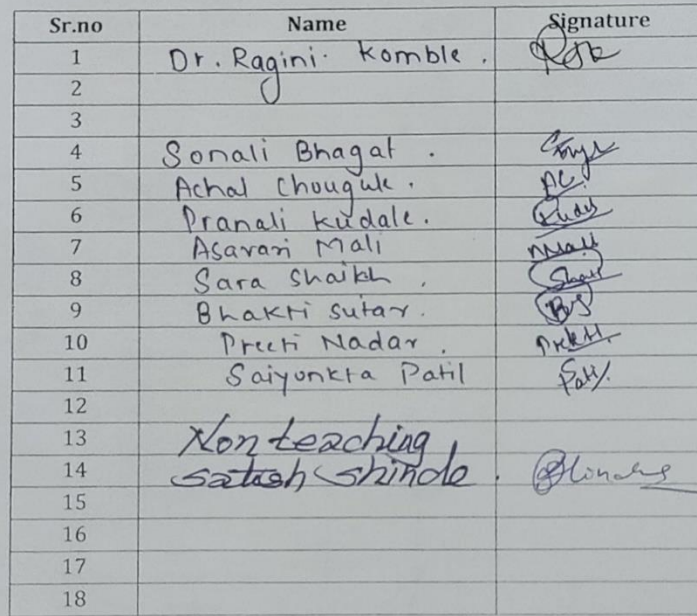 Sr.no Name Signature
1 Dr. Ragini. Komble.
2
3
4 Sonali Bhagat.
5 Achal Chougule.
6 Pranali Kudale.
7 Asavari Mali
8 Sara Shaikh.
9 Bhakti Sutar.
10 Preeti Nadar.
11 Saiyonkta Patil Patil
12
13 Non teaching
14 Satish Shinde.
15
16
17
18